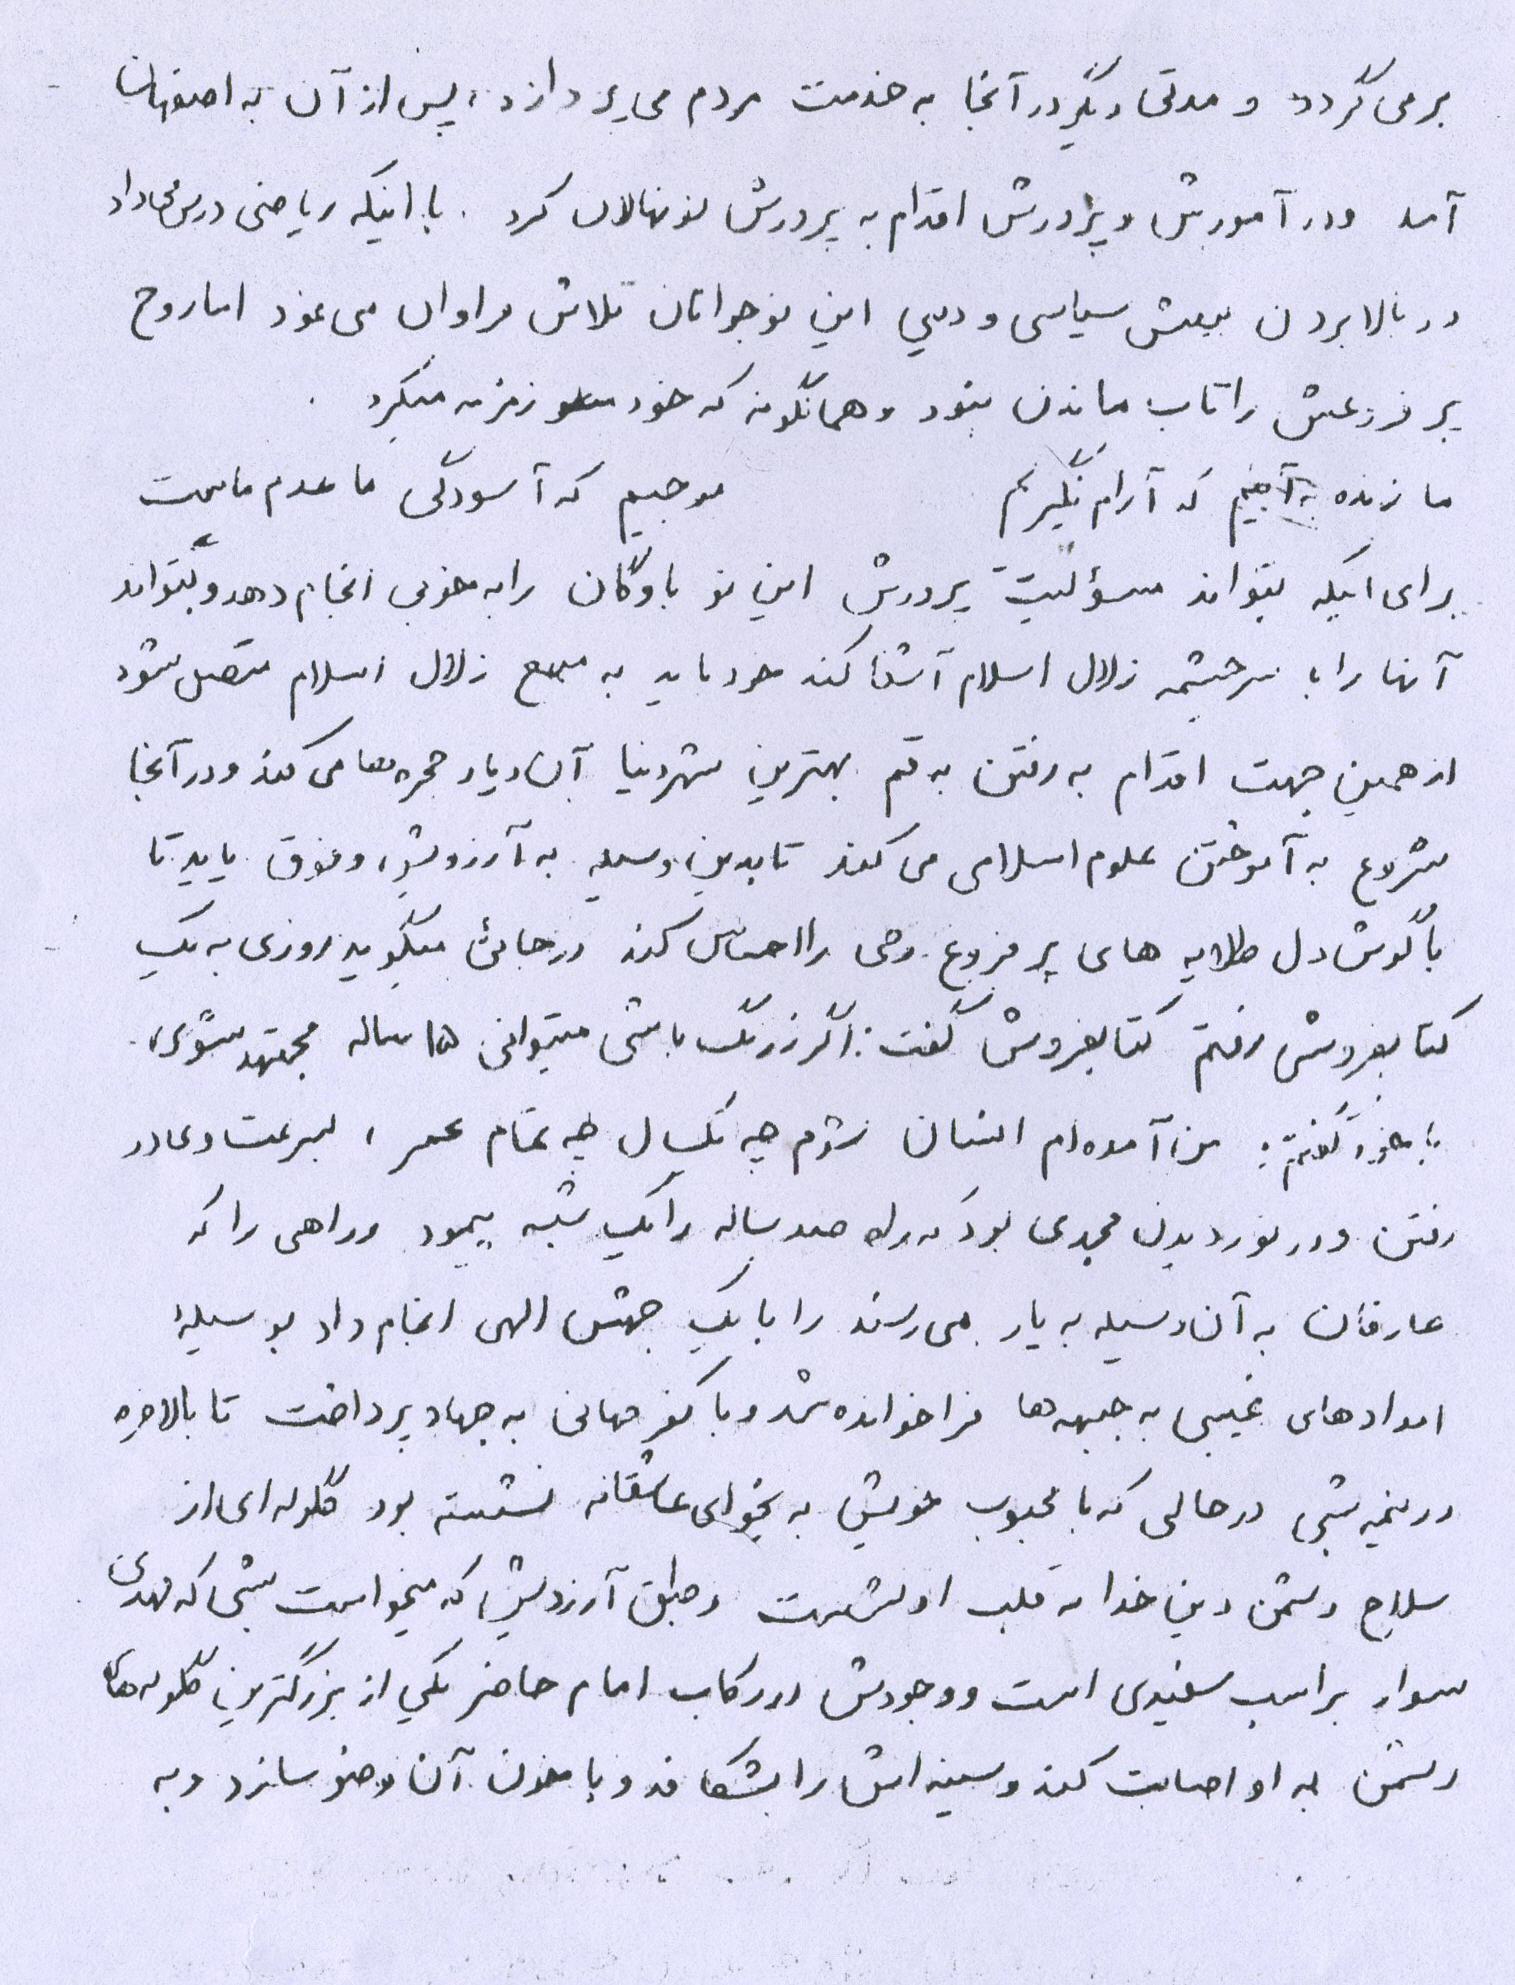 برمی گردد و مدتی دیگر در آنجا به خدمت مردم می پردازد، پس از آن به اصفهان
آمد و در آموزش و پرورش اقدام به پرورش نونهالان کرد . با اینکه ریاضی درس میداد
در بالا بردن بینش سیاسی و دینی این نوجوانان تلاش فراوان می نمود اما روح
پر فروغش را تاب ماندن نبود و همانگونه که خود زمزمه میکرد .
ما زنده به آنیم که آرام نگیریم موجیم که آسودگی ما عدم ماست
برای اینکه بتواند مسؤلیت پرورش این نو باوگان را به خوبی انجام دهد و بتواند
آنها را با سرچشمه زلال اسلام آشنا کند خود باید به منبع زلال اسلام متصل شود
از همین جهت اقدام به رفتن به قم بهترین شهر دنیا آن دیار حجره ها می کند و در آنجا
شروع به آموختن علوم اسلامی می کند تا بدین وسیله به آرزویش، وفوق یابد تا
با گوش دل طلایه های پر فروغ وحی را احساس کند در جائی میگوید روزی به یک
کتابفروشی رفتم کتابفروش گفت: اگر زرنگ باشی میتوانی ۱۵ ساله مجتهد شوی،
با خود گفتم: من آمده ام انسان شوم چه یکسال چه تمام عمر ، بسرعت و در
رفتن و در نوردیدن بود که راه صد ساله را یک شبه پیمود و راهی را که
عارفان به آن وسیله به یار می رسند را با یک جهش الهی انجام داد بوسیلهٔ
امدادهای غیبی به جبهه ها فرا خوانده شد و با کفر جهانی به جهاد پرداخت تا بالاخره
در نیمه شبی در حالی که با محبوب خویش به نجوای عاشقانه نشسته بود گلوله ای از
سلاح دشمن دین خدا به قلب او نشست و طبق آرزویش که میخواست شبی که مهدی
سوار بر اسب سفیدی است و وجودش در رکاب امام حاضر یکی از بزرگترین گلوله های
دشمن به او اصابت کند و سینه اش را بشکافد و با خون آن وضو سازد و به